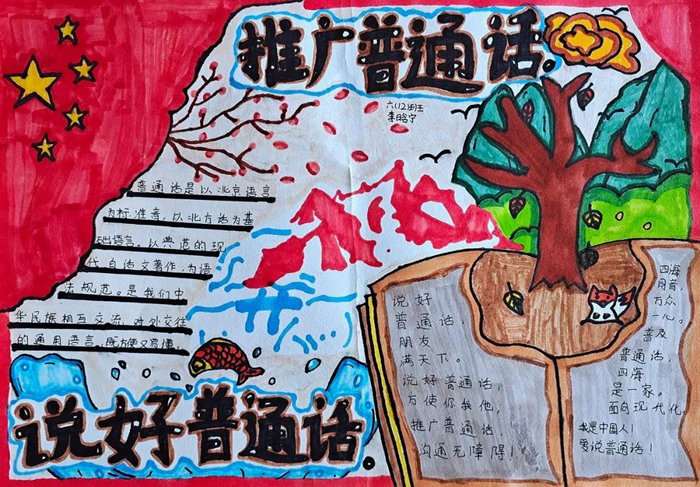 推广普通话
六(12)班
普通话是以北京语言
为标准音，以北方话为基
础语言，以典范的现
代白话文著作，为语
法规范。是我们中
华民族相互交流，对外交往
的通用语言，既方便又易懂。
说好普通话
说好
普通话，
朋友
满天下。
说好普通话，
方便你我他，
推广普通话，
沟通无障碍！
四海
同音，
万众
一心。
普及
普通话，
四海
是一家。
面向现代化
我是中国人！
爱说普通话！